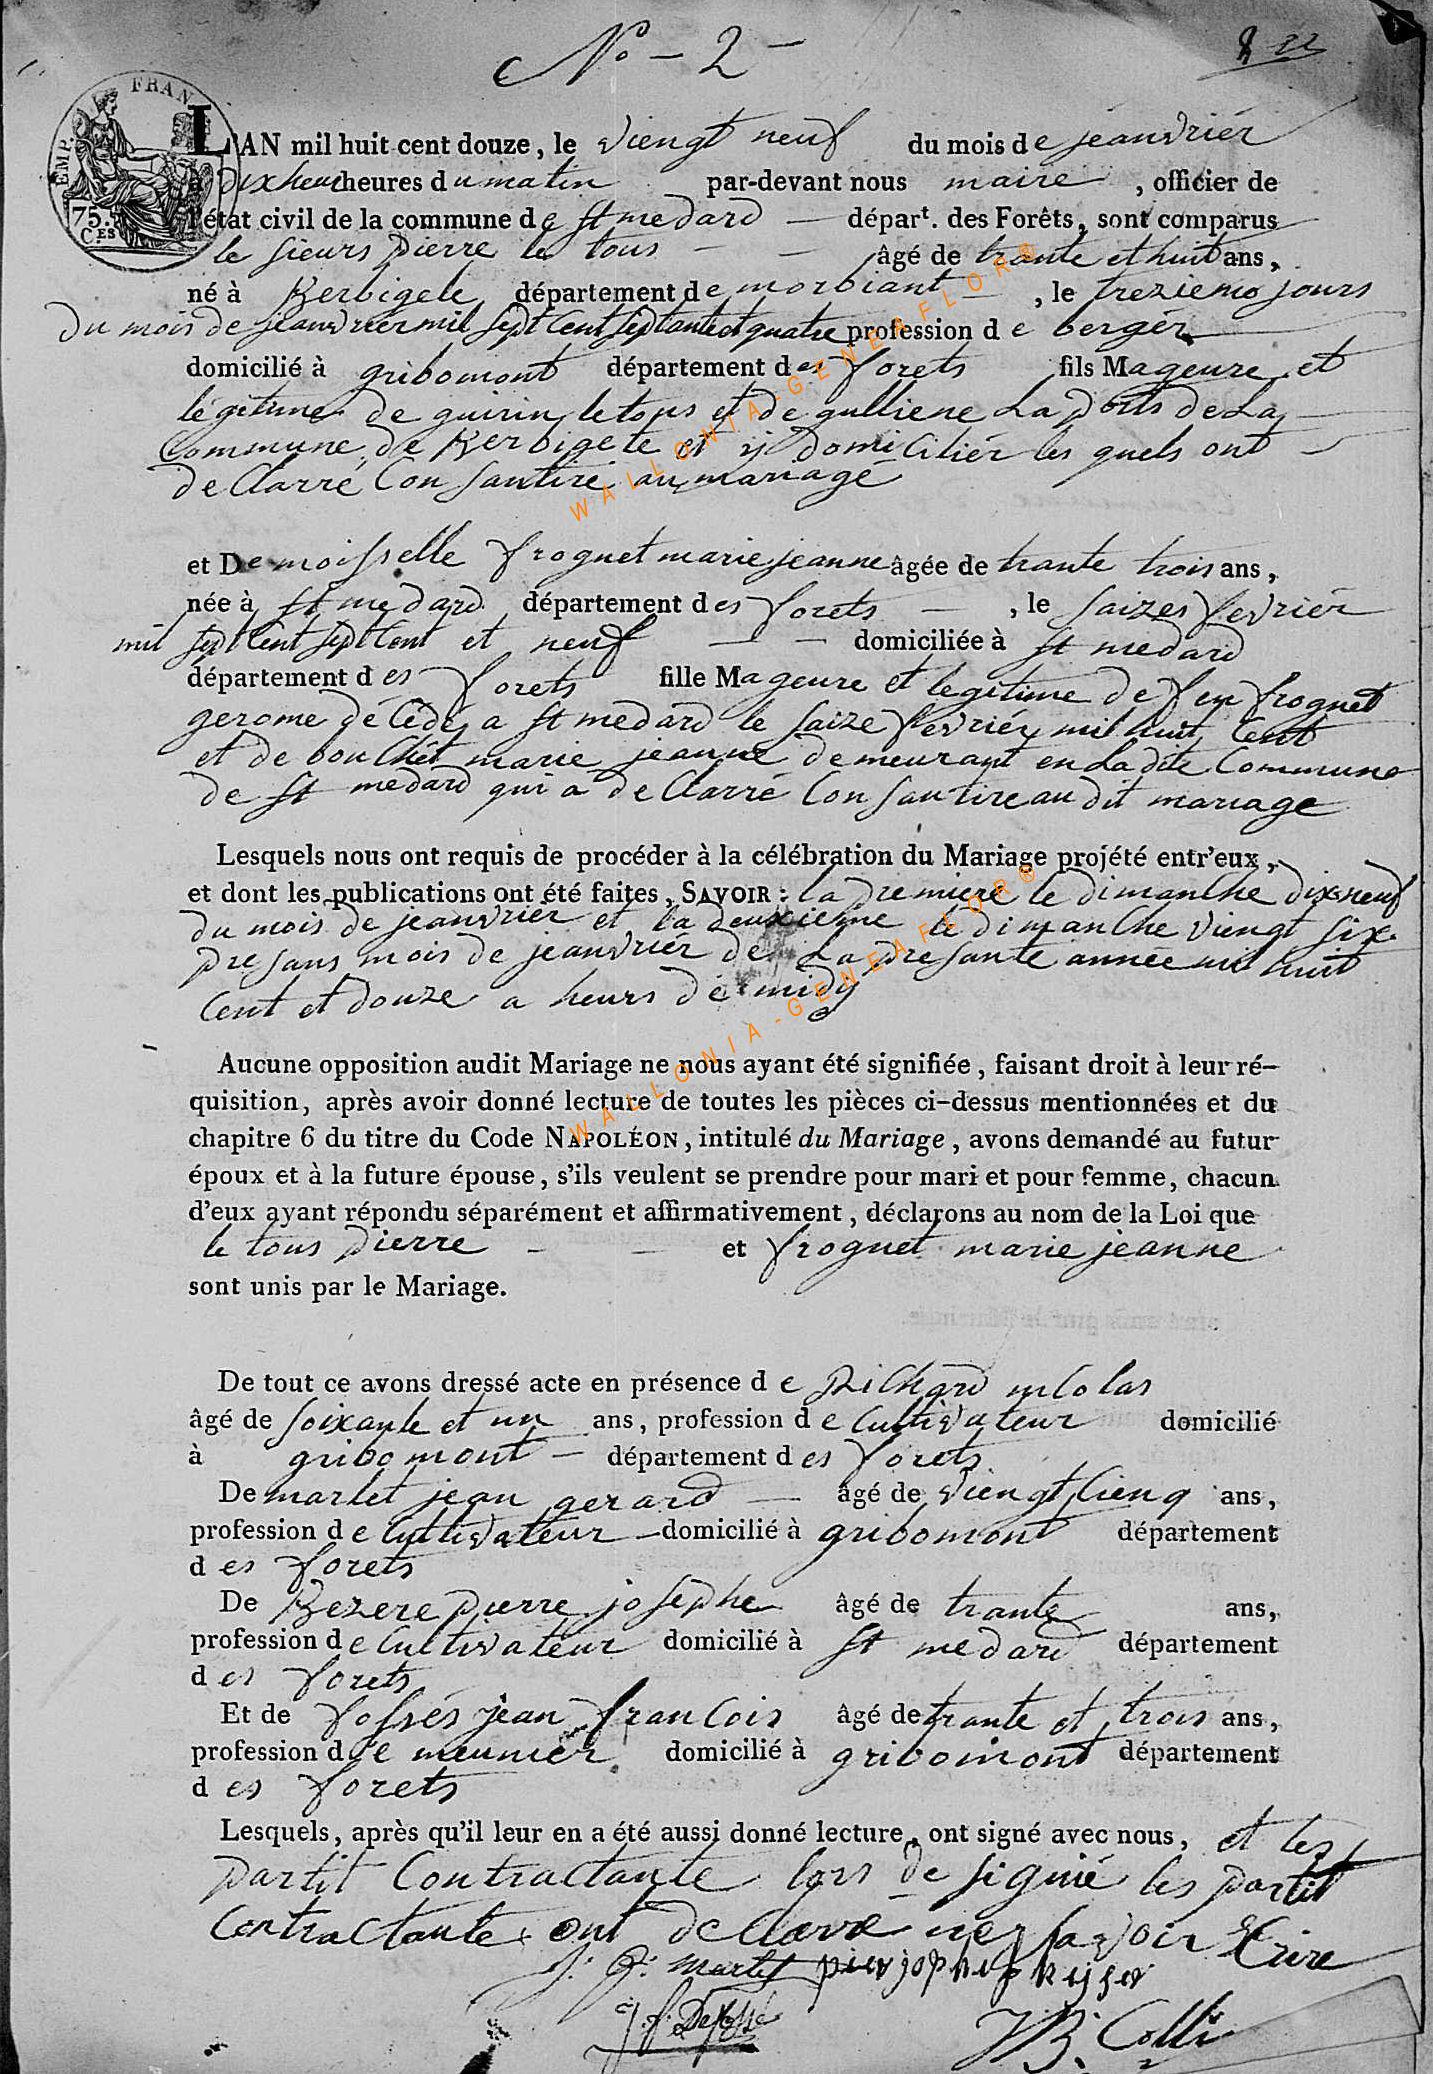 N° - 2 -
EMP. FRAN
75. C.ES
L'AN mil huit cent douze, le viengt neuf du mois de jeanvriér
dix heur heures du matin par-devant nous maire, officier de
l'état civil de la commune de St medard — départ. des Forêts, sont comparus
le sieurs pierre le tous — âgé de trante et huit ans,
né à Kerbigele département de morbiant —, le treziemo jours
du mois de jeanvrier mil sept Cent septante et quatre profession de bergér
domicilié à gribomont département des forets fils Mageure et
légitime de guirin le tous et de gulliene La ports de La
Commune de Kerbigete et y domicilier les quels ont
de Clarré Con santire au mariagé
et Demoisselle frognet marie jeanne âgée de trante trois ans,
née à St medard département des forets —, le saizes fevriér
mil sept Cent sept Cent et neuf — domiciliée à St medard
département des forets fille Mageure et legitime de feu frognet
gerome décédé a St medard le saize fevriér mil huit Cent
et de bouChét marie jeanne demeurant en La dite Commune
de St medard qui a de Clarré Con santire au dit mariage
Lesquels nous ont requis de procéder à la célébration du Mariage projété entr'eux,
et dont les publications ont été faites, SAVOIR: la premiere le dimanche dix neuf
du mois de jeanvriér et la deuxieme le dimanche viengt six
presans mois de jeanvrier de La presante année mil huit
Cent et douze a heurs de midy
Aucune opposition audit Mariage ne nous ayant été signifiée, faisant droit à leur ré-
quisition, après avoir donné lecture de toutes les pièces ci-dessus mentionnées et du
chapitre 6 du titre du Code NAPOLÉON, intitulé du Mariage, avons demandé au futur
époux et à la future épouse, s'ils veulent se prendre pour mari et pour femme, chacun
d'eux ayant répondu séparément et affirmativement, déclarons au nom de la Loi que
le tous pierre — et frognet marie jeanne
sont unis par le Mariage.
De tout ce avons dressé acte en présence de Richard nicolas
âgé de soixante et un ans, profession de Cultivateur domicilié
à gribomont — département des forets
De marlet jean gerard — âgé de viengt Cienq ans,
profession de Cultivateur — domicilié à gribomont département
des forets
De Kezere pierre josephe âgé de trante ans,
profession de Cultivateur domicilié à St medard département
des forets
Et de fossés jean francois âgé de trante et trois ans,
profession de meunier domicilié à gribomont département
des forets
Lesquels, après qu'il leur en a été aussi donné lecture, ont signé avec nous, et les
partit Contractante lors de signié les partit
Contractante ont de Clarré ne savoir Ecrire
J: G: marlet
j. f. Defossé
J B. Colli
WALLONIA-GENEAFLOR®
WALLONIA-GENEAFLOR®